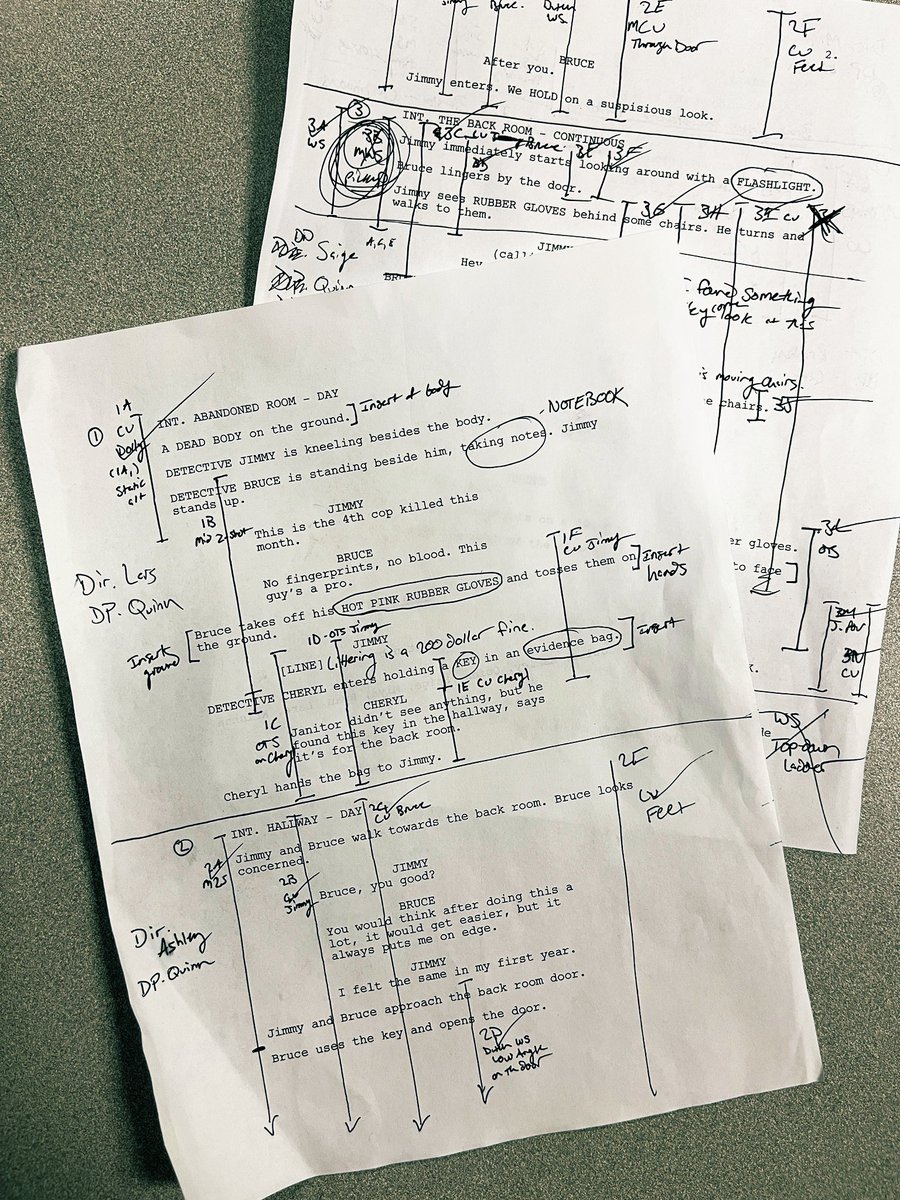 2E
MCU
Through Door
2F
CU
Feet
2.
BRUCE
After you.
Jimmy enters. We HOLD on a suspisious look.
3
INT. THE BACK ROOM - CONTINUOUS
3A
WS
3B
MWS
Pickup
3E
3F
Jimmy immediately starts looking around with a FLASHLIGHT.
Bruce lingers by the door.
3G
3H
3I CU
Jimmy sees RUBBER GLOVES behind some chairs. He turns and
walks to them.
Saige
Quinn
JIMMY
Hey
found something
look at this
moving chairs.
e chairs.
3J
er gloves.
OTS
to face
CU
WS
Top down
Ladder
1
1A
CU
Dolly
(1A,)
Static
alt
INT. ABANDONED ROOM - DAY
A DEAD BODY on the ground.
Insert of body
DETECTIVE JIMMY is kneeling besides the body.
NOTEBOOK
DETECTIVE BRUCE is standing beside him, taking notes. Jimmy
stands up.
1B
Mid 2-shot
JIMMY
This is the 4th cop killed this
month.
Dir. Lars
DP. Quinn
BRUCE
No fingerprints, no blood. This
guy's a pro.
1F
CU Jimmy
Bruce takes off his HOT PINK RUBBER GLOVES and tosses them on
the ground.
Insert
hands
Insert
ground
1D-OTS Jimmy
JIMMY
[LINE] Littering is a 200 dollar fine.
DETECTIVE CHERYL enters holding a KEY in an evidence bag.
Insert
1E CU Cheryl
1C
OTS
on Cheryl
CHERYL
Janitor didn't see anything, but he
found this key in the hallway, says
it's for the back room.
Cheryl hands the bag to Jimmy.
2
INT. HALLWAY - DAY
2C
CU Bruce
2F
CU
Feet
2A
M2S
Jimmy and Bruce walk towards the back room. Bruce looks
concerned.
2B
CU
Jimmy
JIMMY
Bruce, you good?
Dir.
Ashley
DP. Quinn
BRUCE
You would think after doing this a
lot, it would get easier, but it
always puts me on edge.
JIMMY
I felt the same in my first year.
Jimmy and Bruce approach the back room door.
Bruce uses the key and opens the door.
2D
Dutch WS
Low Angle
on the door